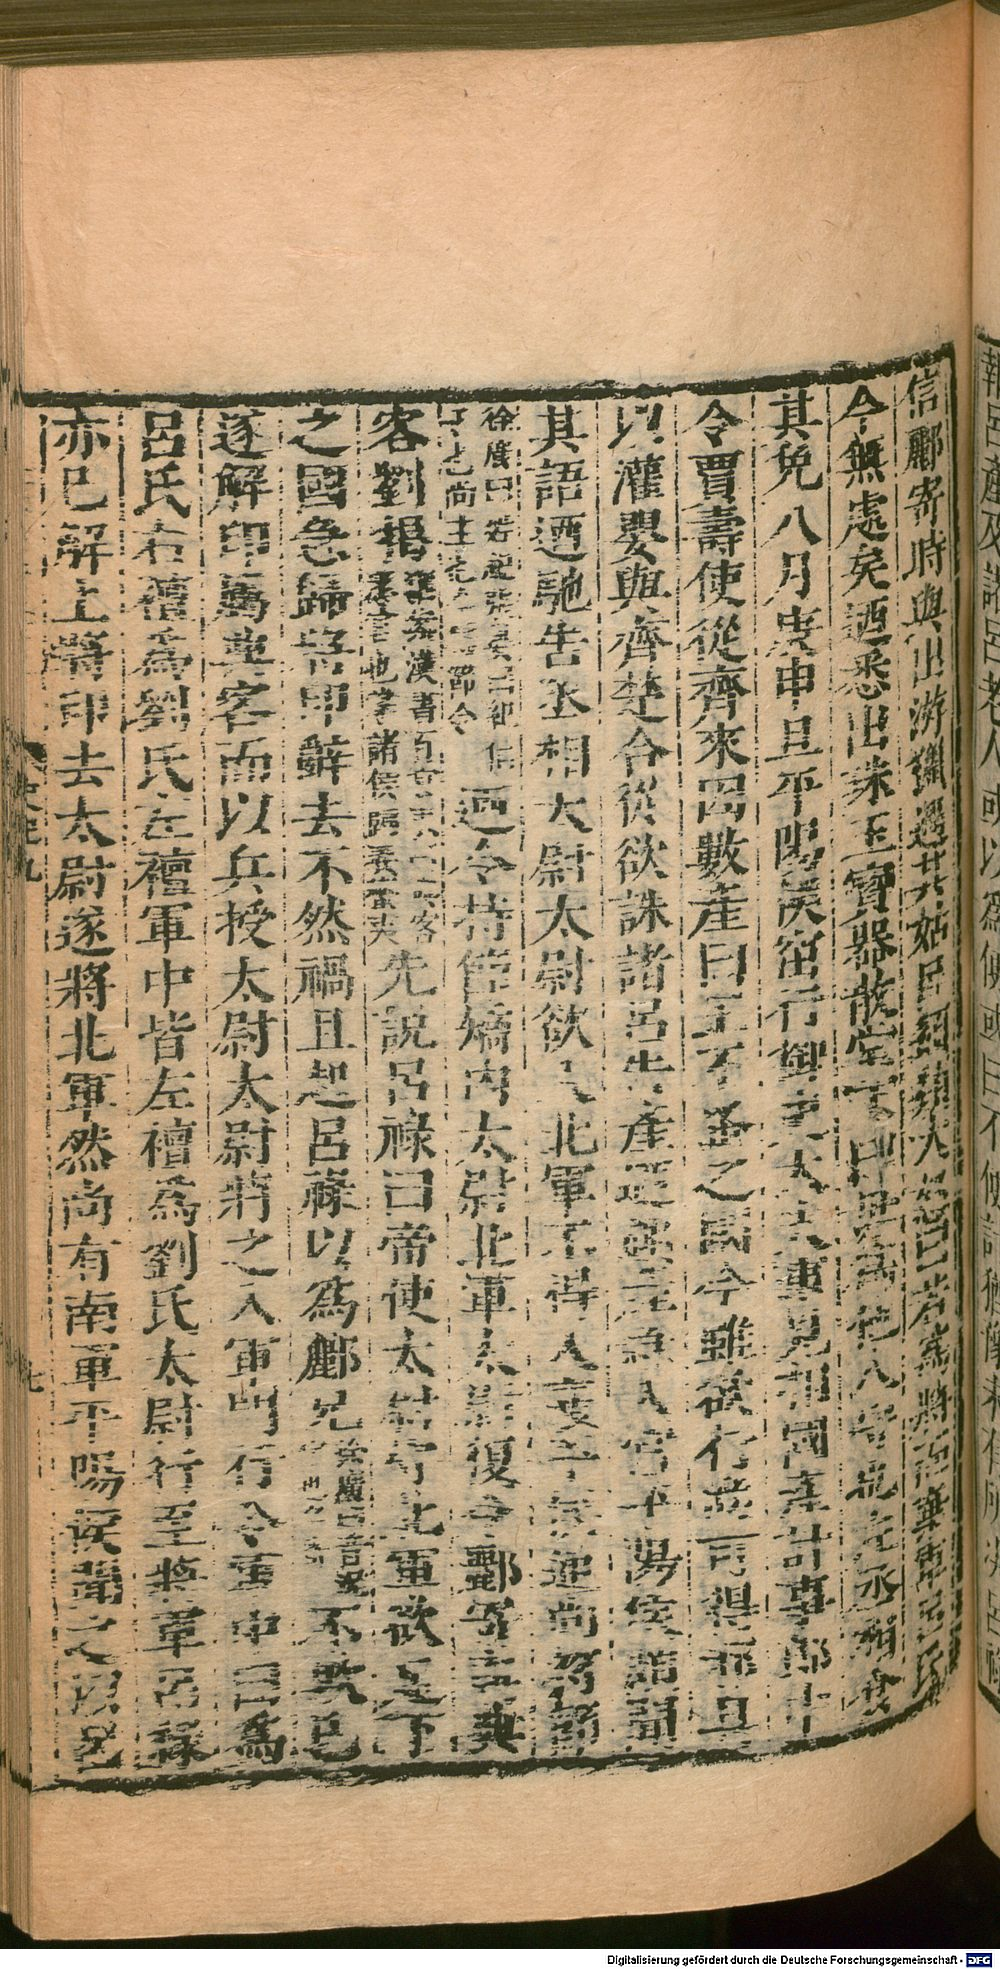 信酈寄時與出游獵過其姑呂嬃嬃大怒曰若為將而棄軍呂氏
今無處矣迺悉出珠玉寶器散堂下曰毋為他人守也左丞相食
其免八月庚申旦平陽侯窋行御史大夫事見相國產計事郎中
令賈壽使從齊來因數產曰王不蚤之國今雖欲行尚可得邪具
以灌嬰與齊楚合從欲誅諸呂告產迺趣產急入宮平陽侯頗聞
其語迺馳告丞相太尉太尉欲入北軍不得入襄平侯通尚符節
徐廣曰 迺令持節矯內太尉北軍太尉復令酈寄與典
客劉揭 漢書百官 掌諸侯歸義蠻夷 先說呂祿曰帝使太尉守北軍欲足下
之國急歸將印辭去不然禍且起呂祿以為酈兄 徐廣曰音況 不欺己
遂解印屬典客而以兵授太尉太尉將之入軍門行令軍中曰為
呂氏右襢為劉氏左襢軍中皆左襢為劉氏太尉行至將軍呂祿
亦已解上將印去太尉遂將北軍然尚有南軍平陽侯聞之以呂
Digitalisierung gefördert durch die Deutsche Forschungsgemeinschaft - DFG